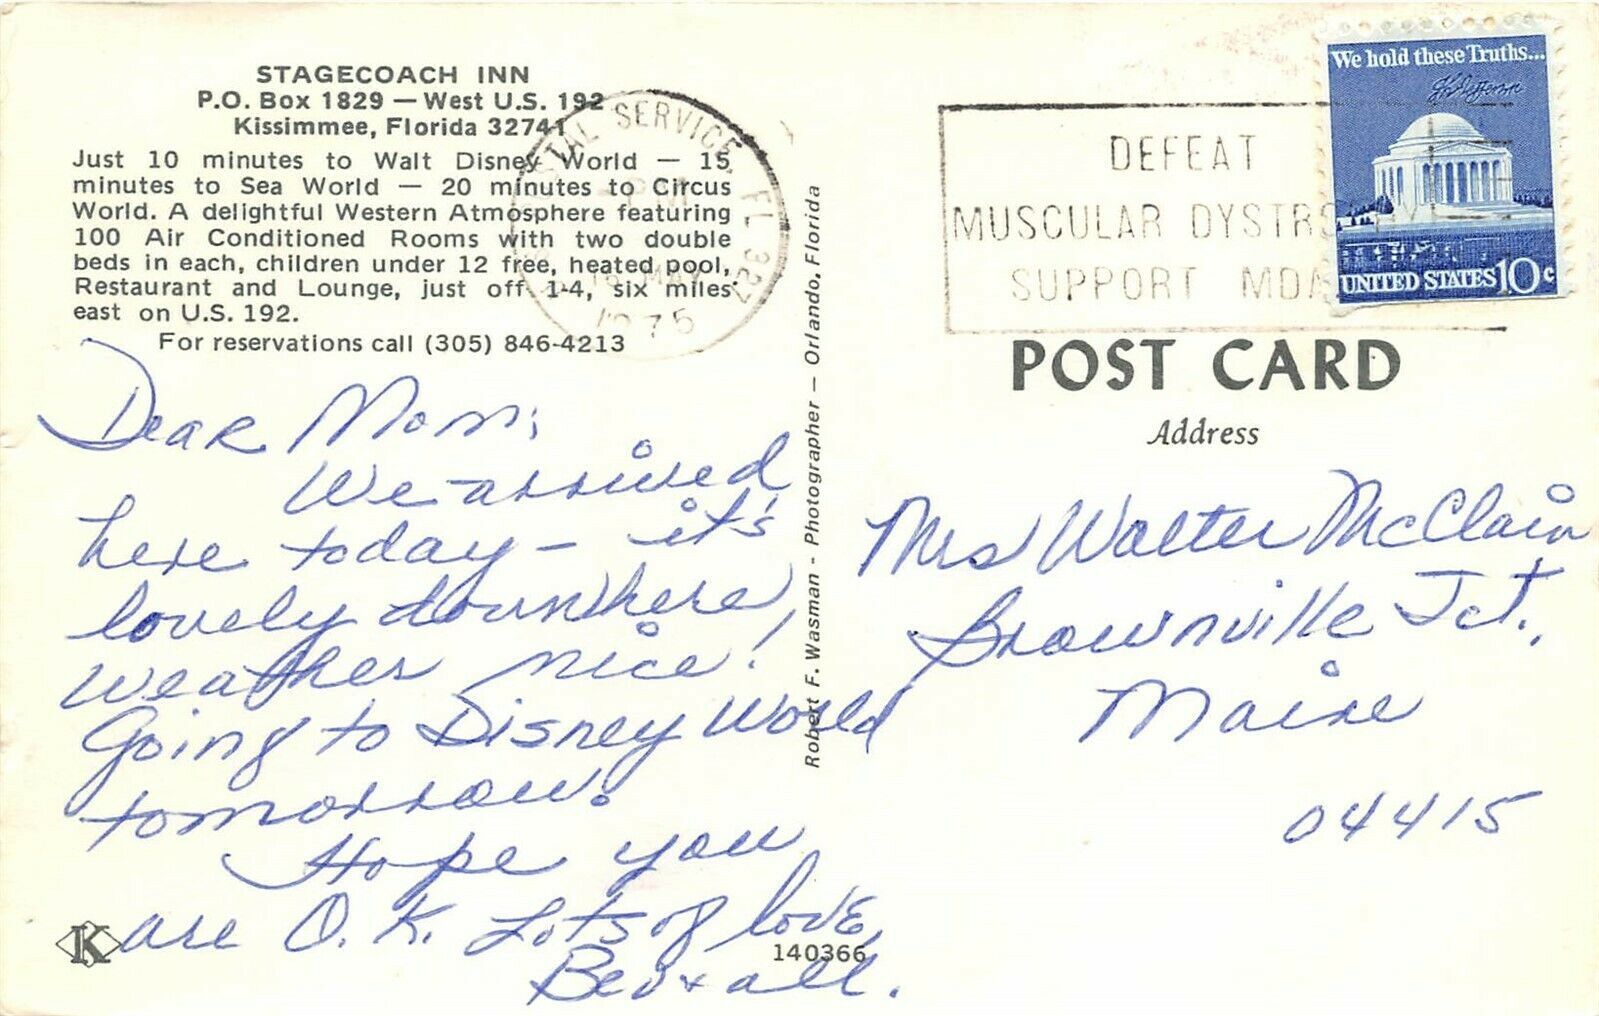 STAGECOACH INN
P.O. Box 1829 — West U.S. 192
Kissimmee, Florida 32741
Just 10 minutes to Walt Disney World — 15
minutes to Sea World — 20 minutes to Circus
World. A delightful Western Atmosphere featuring
100 Air Conditioned Rooms with two double
beds in each, children under 12 free, heated pool,
Restaurant and Lounge, just off 1-4, six miles
east on U.S. 192.
For reservations call (305) 846-4213
POSTAL SERVICE, FL 327
PM
MAY
1975
Dear Mom,
We arrived
here today — it's
lovely down here,
weather nice!
Going to Disney World
tomorrow.
Hope you
are O.K. Lots of love,
Bev & all.
K
140366
Robert F. Wasman - Photographer — Orlando, Florida
DEFEAT
MUSCULAR DYSTR
SUPPORT MDA
We hold these Truths...
Th Jefferson
UNITED STATES 10c
POST CARD
Address
Mrs Walter McClain
Brownville Jct.,
Maine
04415